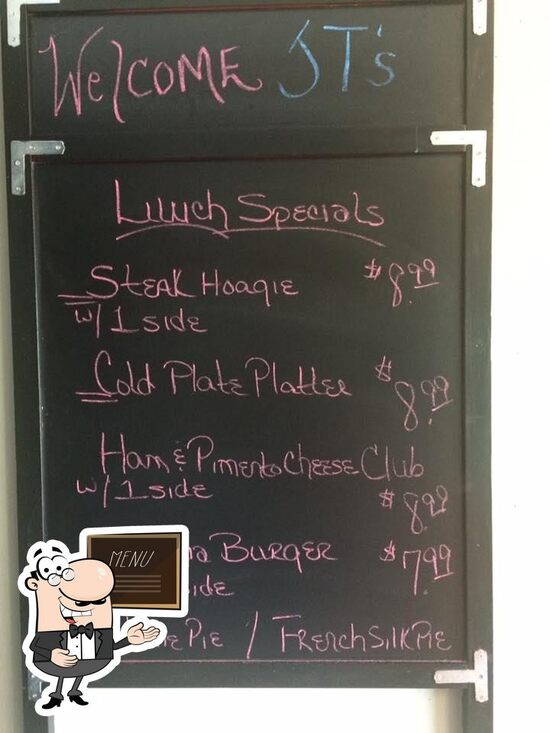 Welcome JT's
Lunch Specials
Steak Hoagie $8.99
w/ 1 side
Cold Plate Platter $8.99
Ham & Pimento Cheese Club
w/ 1 side $8.99
Burger $7.99
Pie / French Silk Pie
MENU